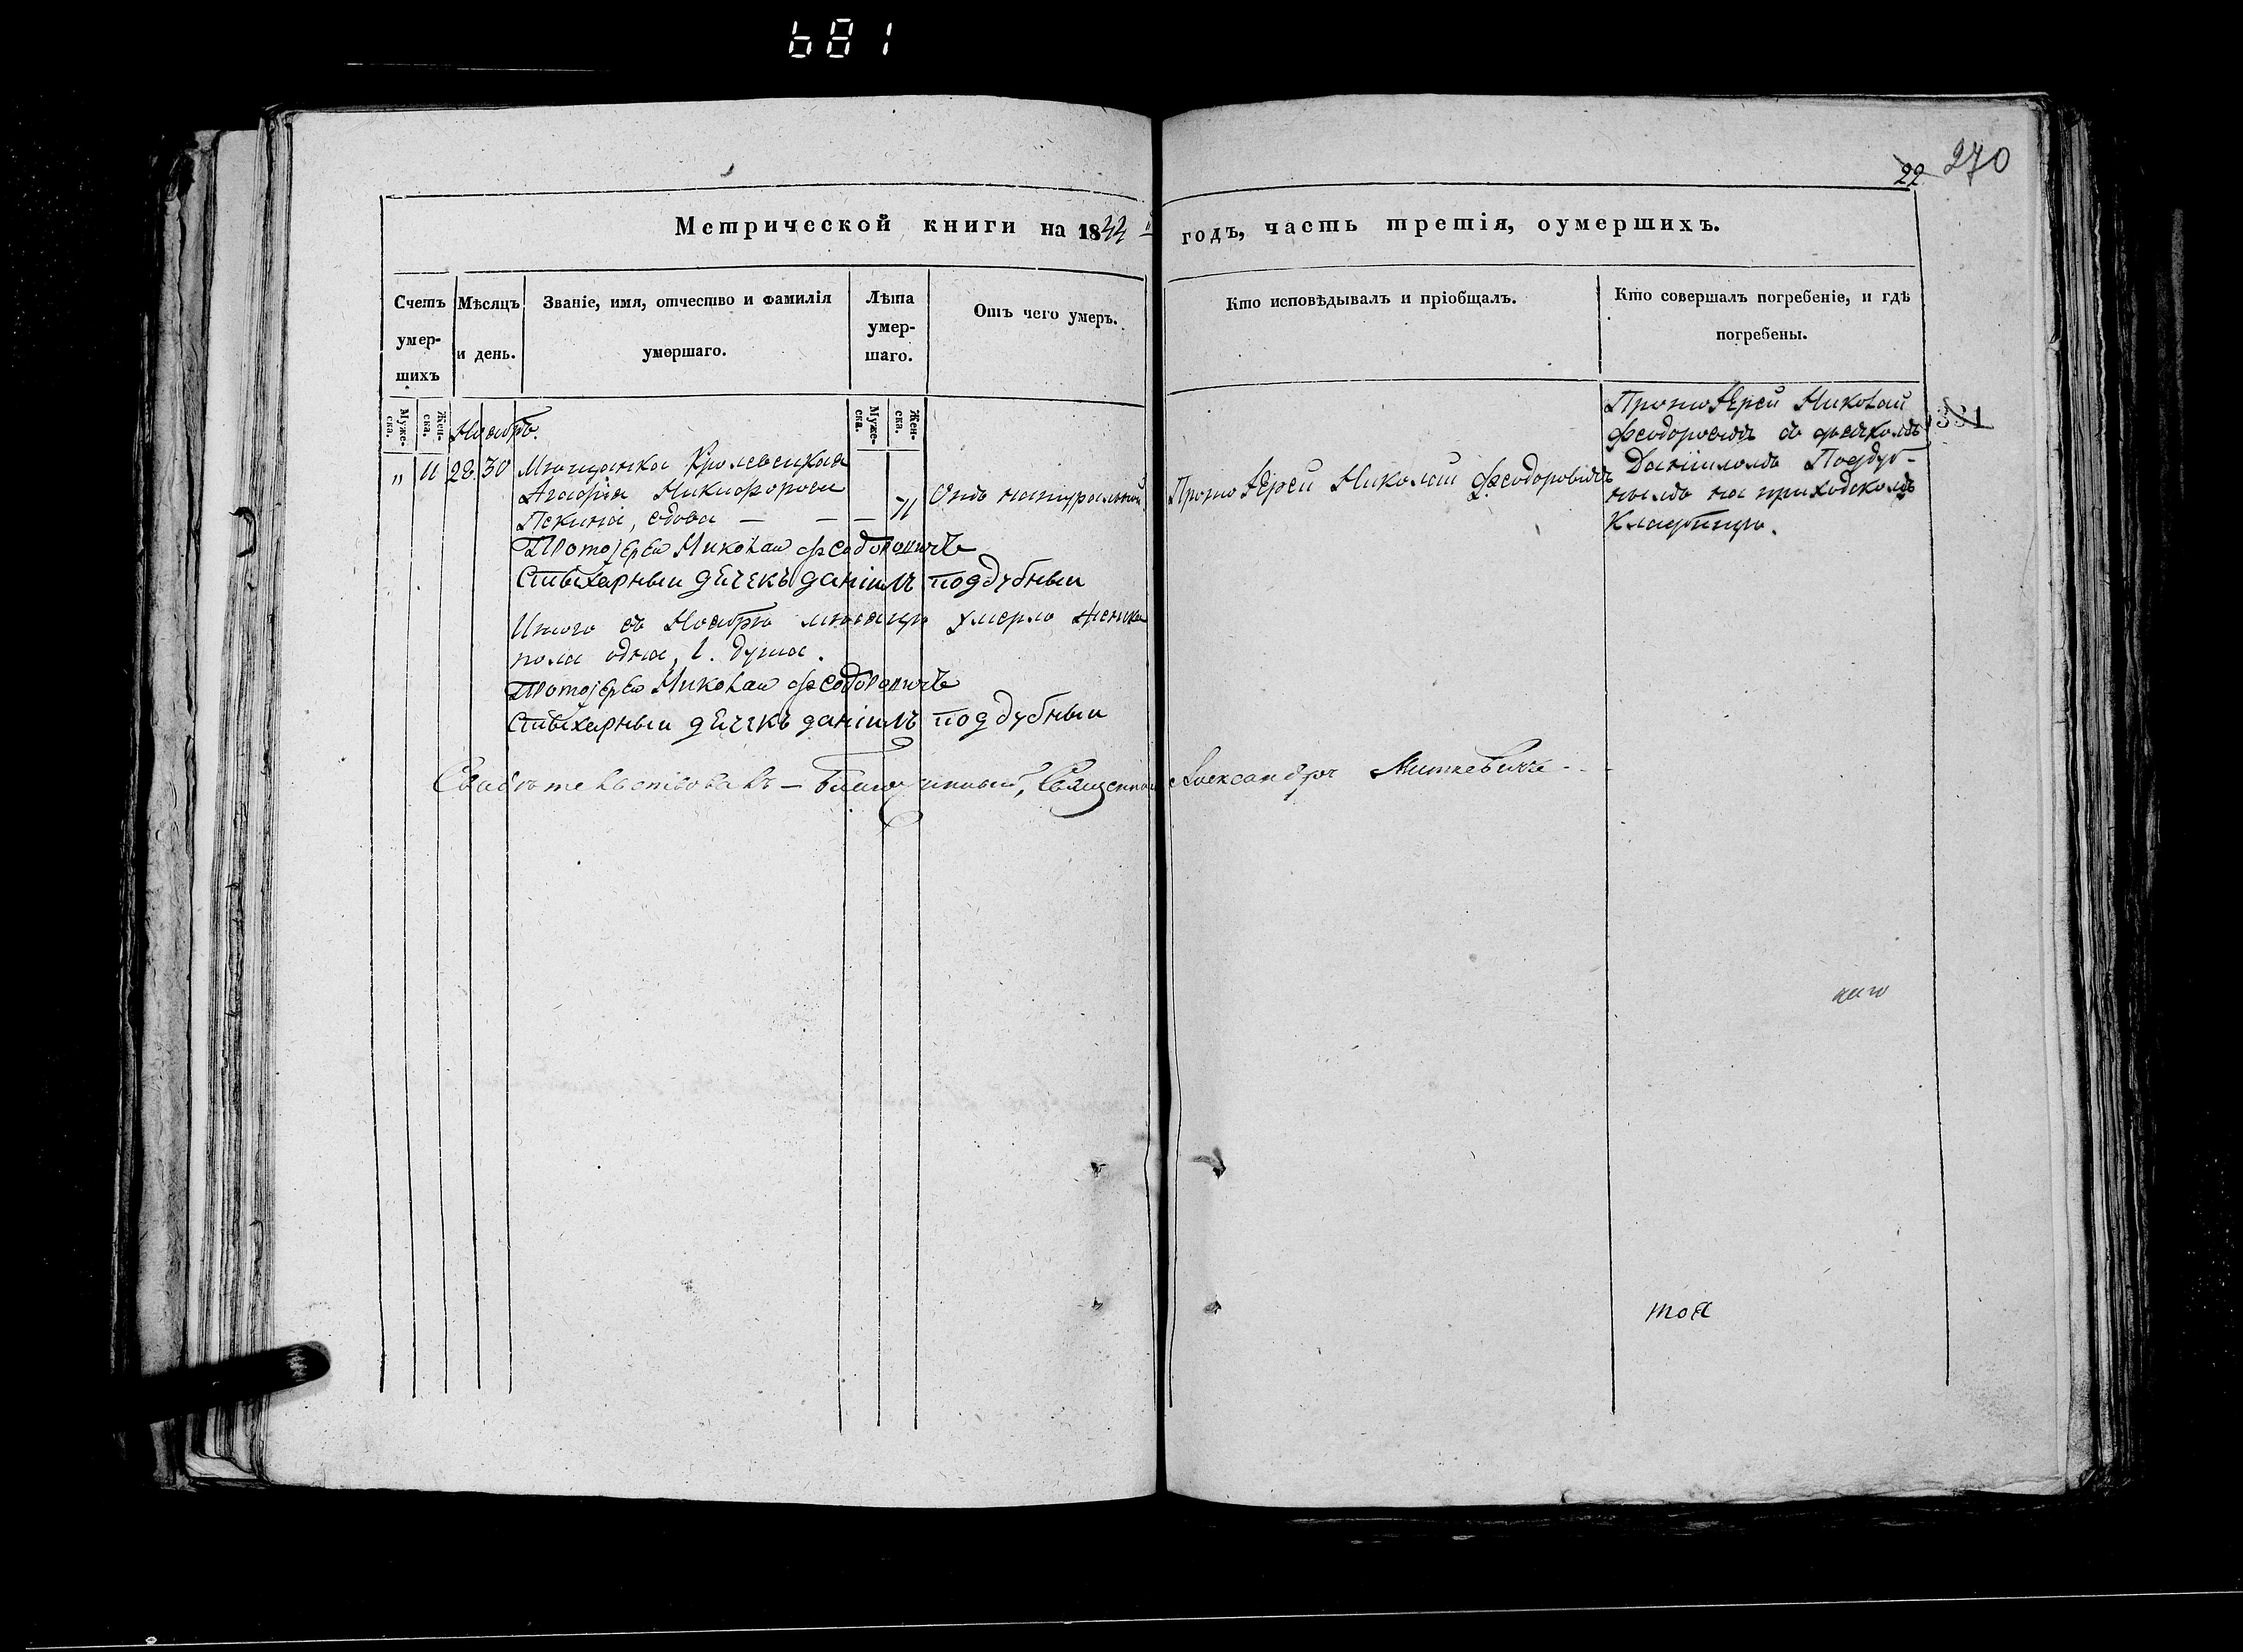 681
22 270
Метрической книги на 1833 годъ, часть третія, оумершихъ.
Счетъ умер-шихъ
Мѣсяцъ и день.
Званіе, имя, отчество и фамилія умершаго.
Лѣта умер-шаго.
Отъ чего умеръ.
Кто исповѣдывалъ и пріобщалъ.
Кто совершалъ погребеніе, и гдѣ погребены.
Муже-ска.
Жен-ска.
Муже-ска.
Жен-ска.
Ноябрь.
„ 11 28 30 Мѣщанка Кролевецкая
Агафія Никифорова
вдова — — —
Отъ натуральной
Прото Іерей Николай Феодоровичъ
Прото Іерей Николай
Феодоровичъ съ дьячкомъ
Даніиломъ Поддуб-
нымъ на приходскомъ
кладбищѣ.
381
Протоіерей Николай Феодоровичъ
Стихарный дьячекъ даніилъ поддубный
Итого въ Ноябрѣ мѣсяцѣ умерло женска
пола одна, 1. душа.
Протоіерей Николай Феодоровичъ
Стихарный дьячекъ даніилъ поддубный
Свидѣтельствовалъ — Благочинный, Священникъ Александръ Миткевичъ